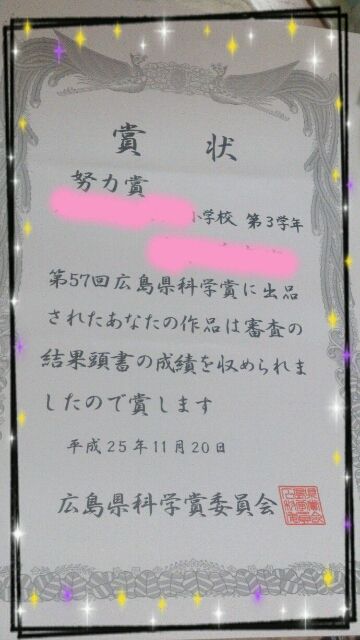 賞状
努力賞
小学校 第3学年
第57回広島県科学賞に出品
されたあなたの作品は審査の
結果頭書の成績を収められま
したので賞します
平成25年11月20日
広島県科学賞委員会